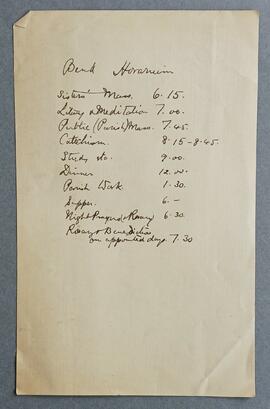 Bend Horarium
Sisters' Mass. 6.15.
Litany & Meditation 7.00.
Public (Parish) Mass. 7.45.
Catechism. 8.15-8.45.
Study etc. 9.00.
Dinner 12.00
Parish Work. 1.30.
Supper. 6.-
Night Prayers (& Rosary) 6.30
Rosary & Benediction
on appointed days. 7.30